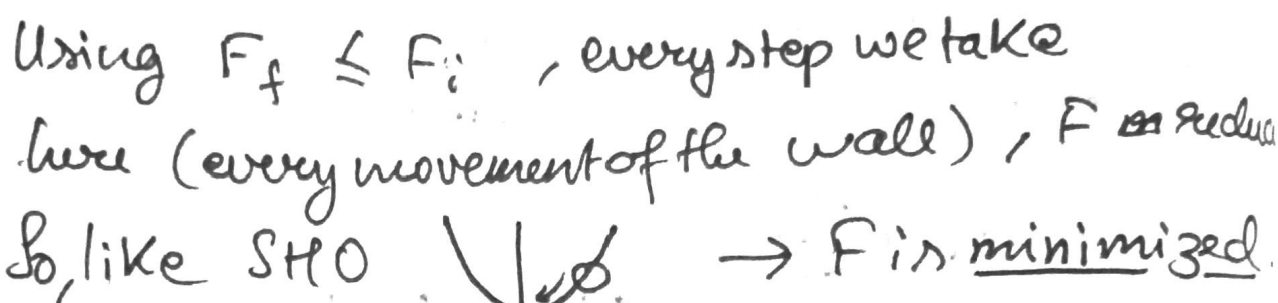 Using F_f ≤ F_i, every step we take
here (every movement of the wall), F reduc
So, like SHO → F is minimized.